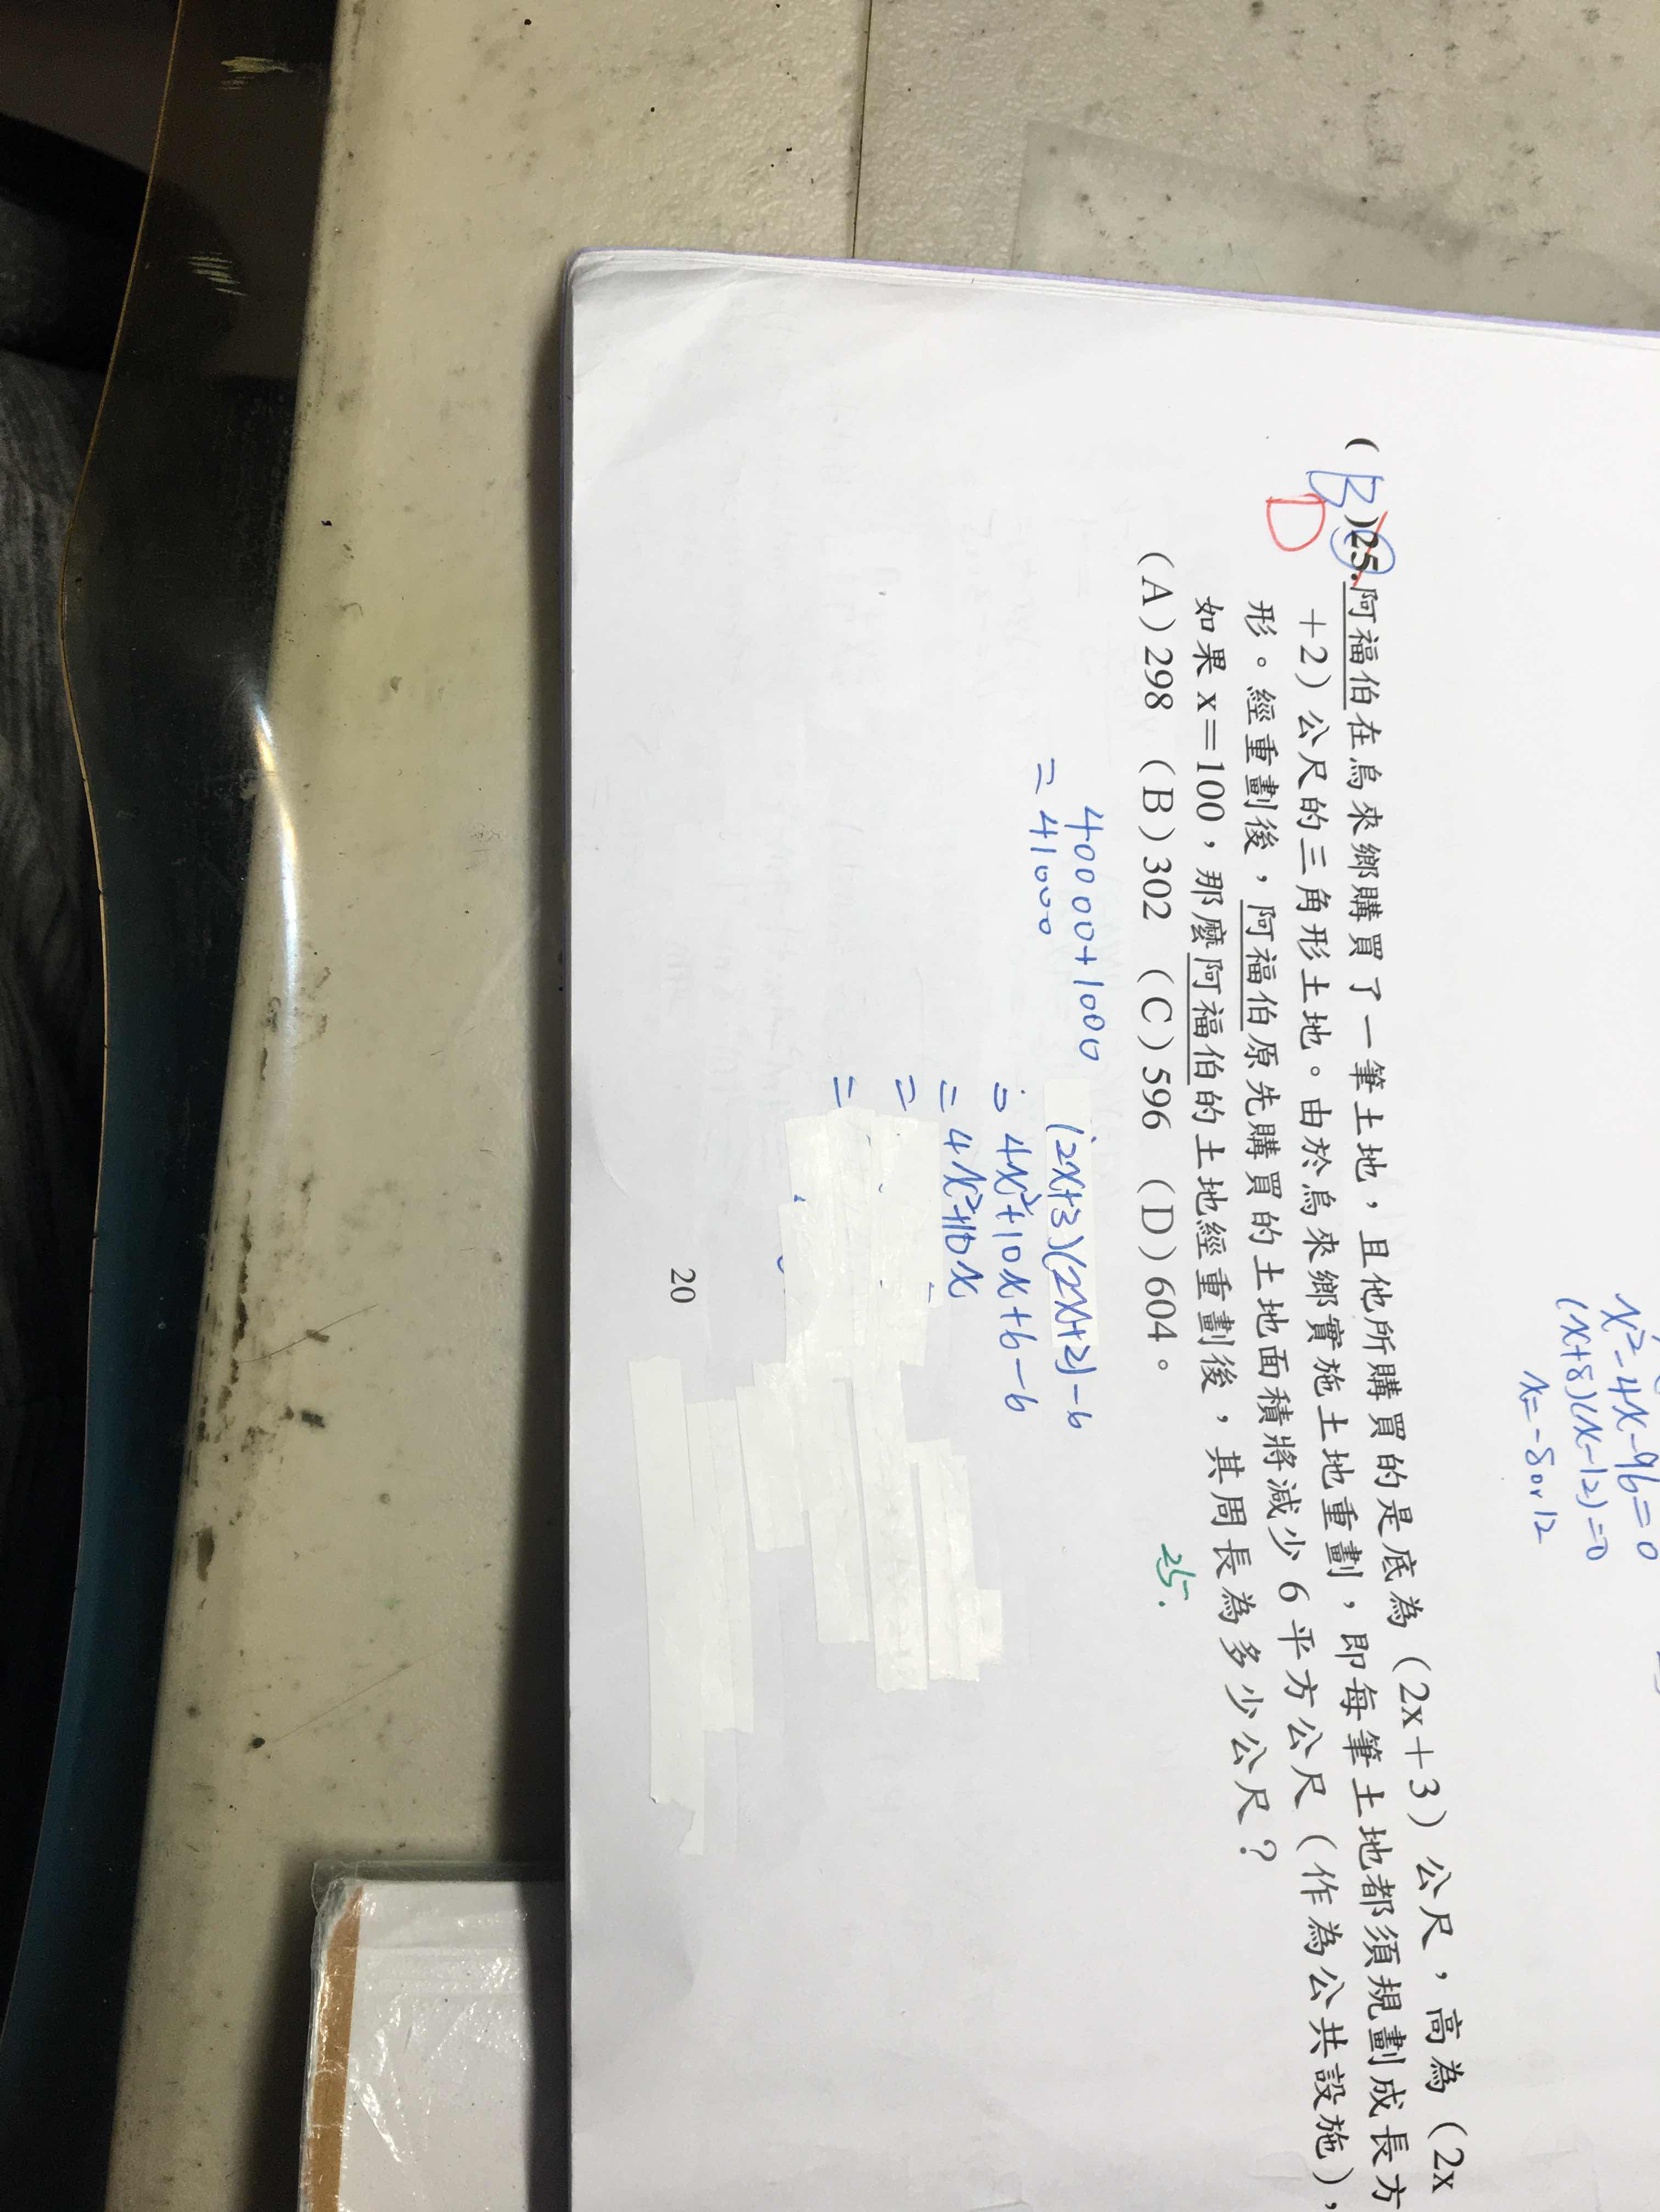 x²-4x-96=0
(x+8)(x-12)=0
x=-8or12
(B)25.阿福伯在烏來鄉購買了一筆土地，且他所購買的是底為（2x＋3）公尺，高為（2x
D
＋2）公尺的三角形土地。由於烏來鄉實施土地重劃，即每筆土地都須規劃成長方
形。經重劃後，阿福伯原先購買的土地面積將減少6平方公尺（作為公共設施），
如果x＝100，那麼阿福伯的土地經重劃後，其周長為多少公尺？
(A)298 (B)302 (C)596 (D)604。
25.
40000+1000
=41000
(2x+3)(2x+2)-6
=4x²+10x+6-6
=4x²+10x
=
=
20